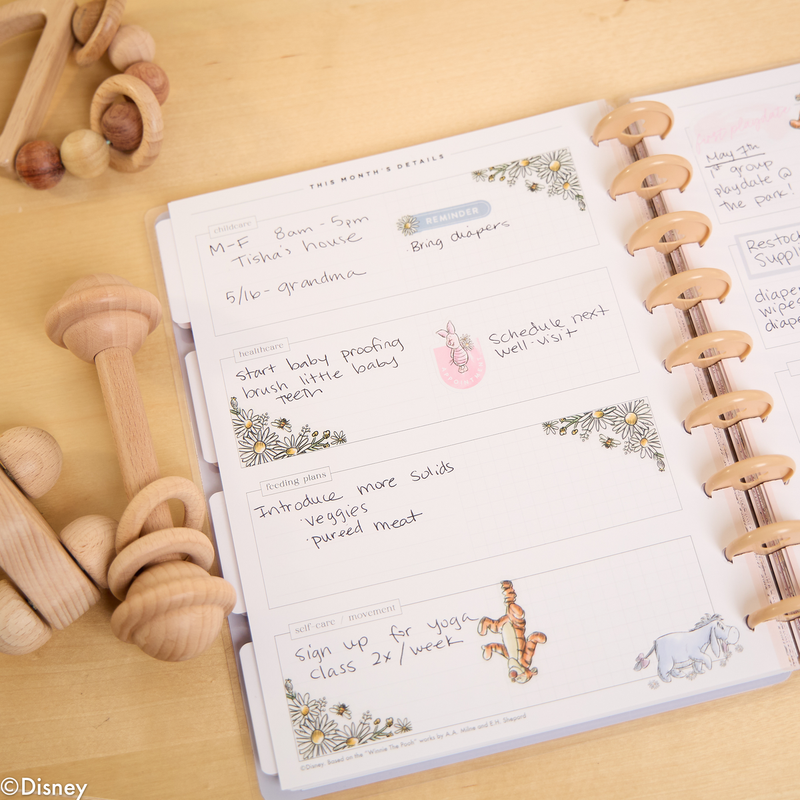 THIS MONTH'S DETAILS
childcare
M-F 8am-5pm
Tisha's house
5/16- grandma
REMINDER
· Bring diapers
healthcare
start baby proofing
brush little baby
TEETH
schedule next
well-visit
feeding plans
Introduce more solids
· veggies
· pureed meat
self-care / movement
sign up for yoga
class 2x/week
©Disney. Based on the "Winnie The Pooh" works by A.A. Milne and E.H. Shepard
May 7th
1st group
playdate @
the park!
Restock
Suppli
diape
wipes
diape
©Disney